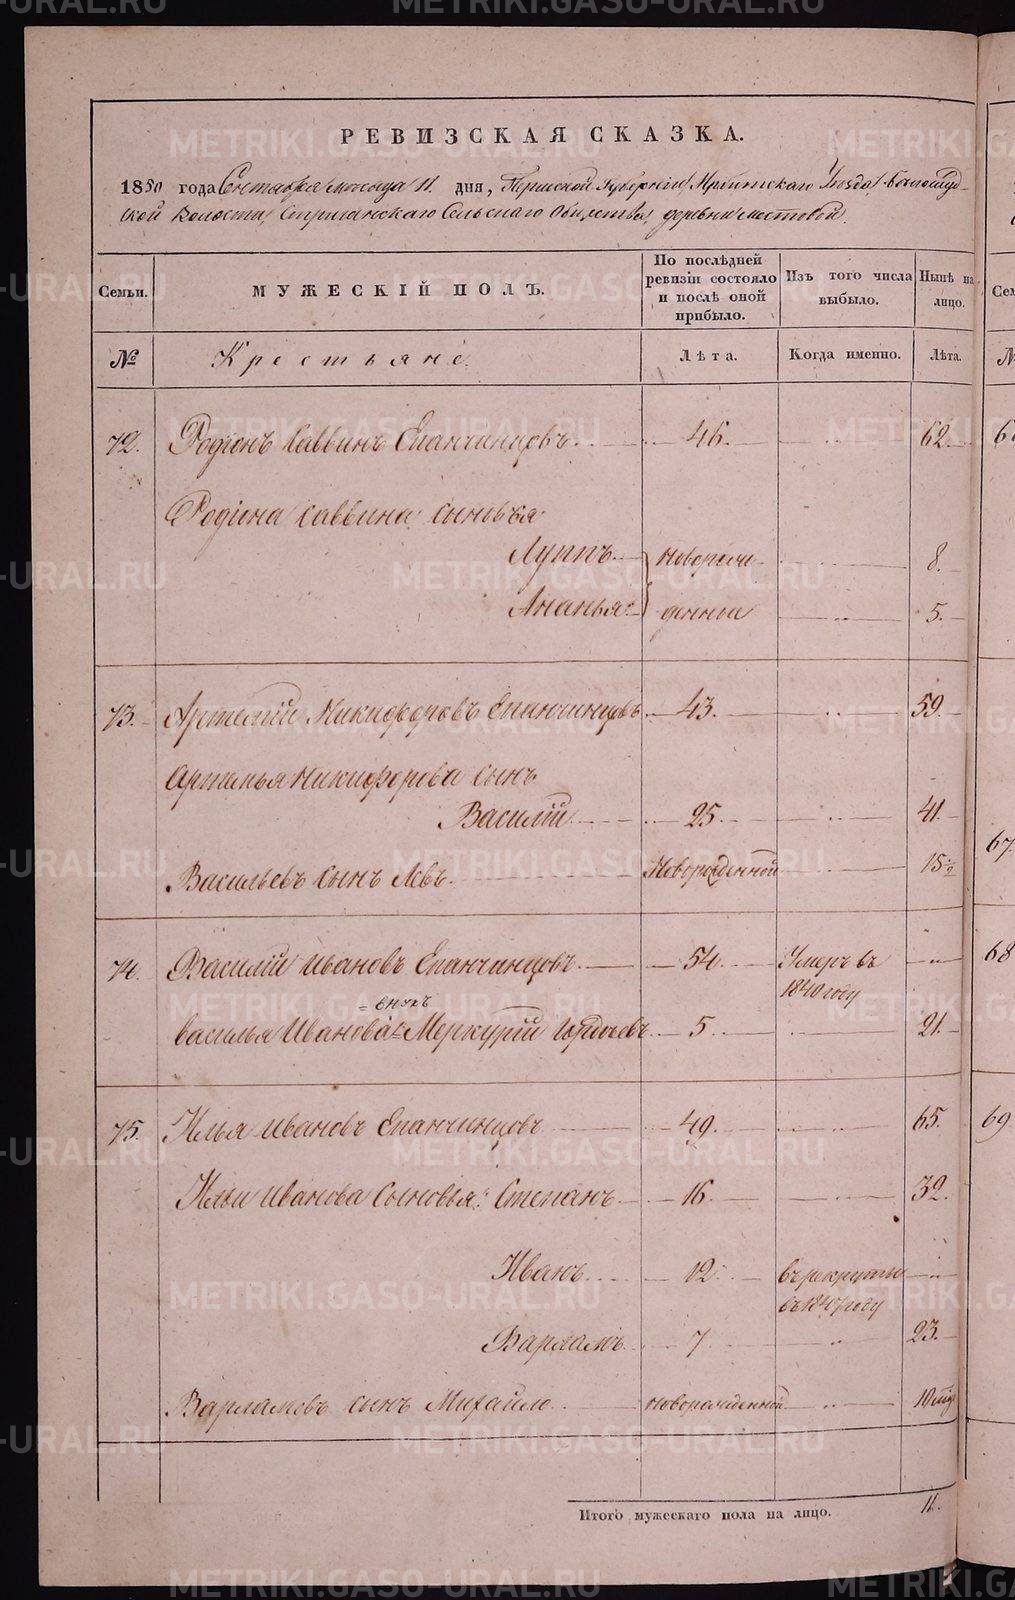 METRIKI.GASO-URAL.RU
РЕВИЗСКАЯ СКАЗКА.
1850 года Сентября месяца 11. дня, Пермской Губернiи, Ирбитскаго Уѣзда,
Волости, Стриганскаго Сельскаго Общества, деревни
Семьи. МУЖЕСКІЙ ПОЛЪ. По послѣдней ревизіи состояло и послѣ оной прибыло. Изъ того числа выбыло. Нынѣ на лицо.
№ Крестьяне. Лѣта. Когда именно. Лѣта.
72. Родіонъ Саввинъ Епанчинцовъ. 46. 62.
Родіона Саввина сыновья
Луппъ новорож- 8.
Ананья денныи 5.
73. Артемій Никифоровъ Епанчинцовъ 43. 59.
Артемья Никифорова сынъ
Василій 25. 41.
Васильевъ сынъ Левъ. Новорожденной 15 1/2
74. Василій Ивановъ Епанчинцовъ 54. Умеръ въ 1840 году
внукъ
Василья Иванова Меркурій 5. 21.
75. Илья Ивановъ Епанчинцовъ 49. 65.
Ильи Иванова Сыновья: Степанъ 16. 32.
Иванъ 12. въ рекруты
въ году
Варламъ 7. 23.
Варламовъ сынъ Михайло новорожденной 10
Итого мужескаго пола на лицо. 11.
67.
68
69